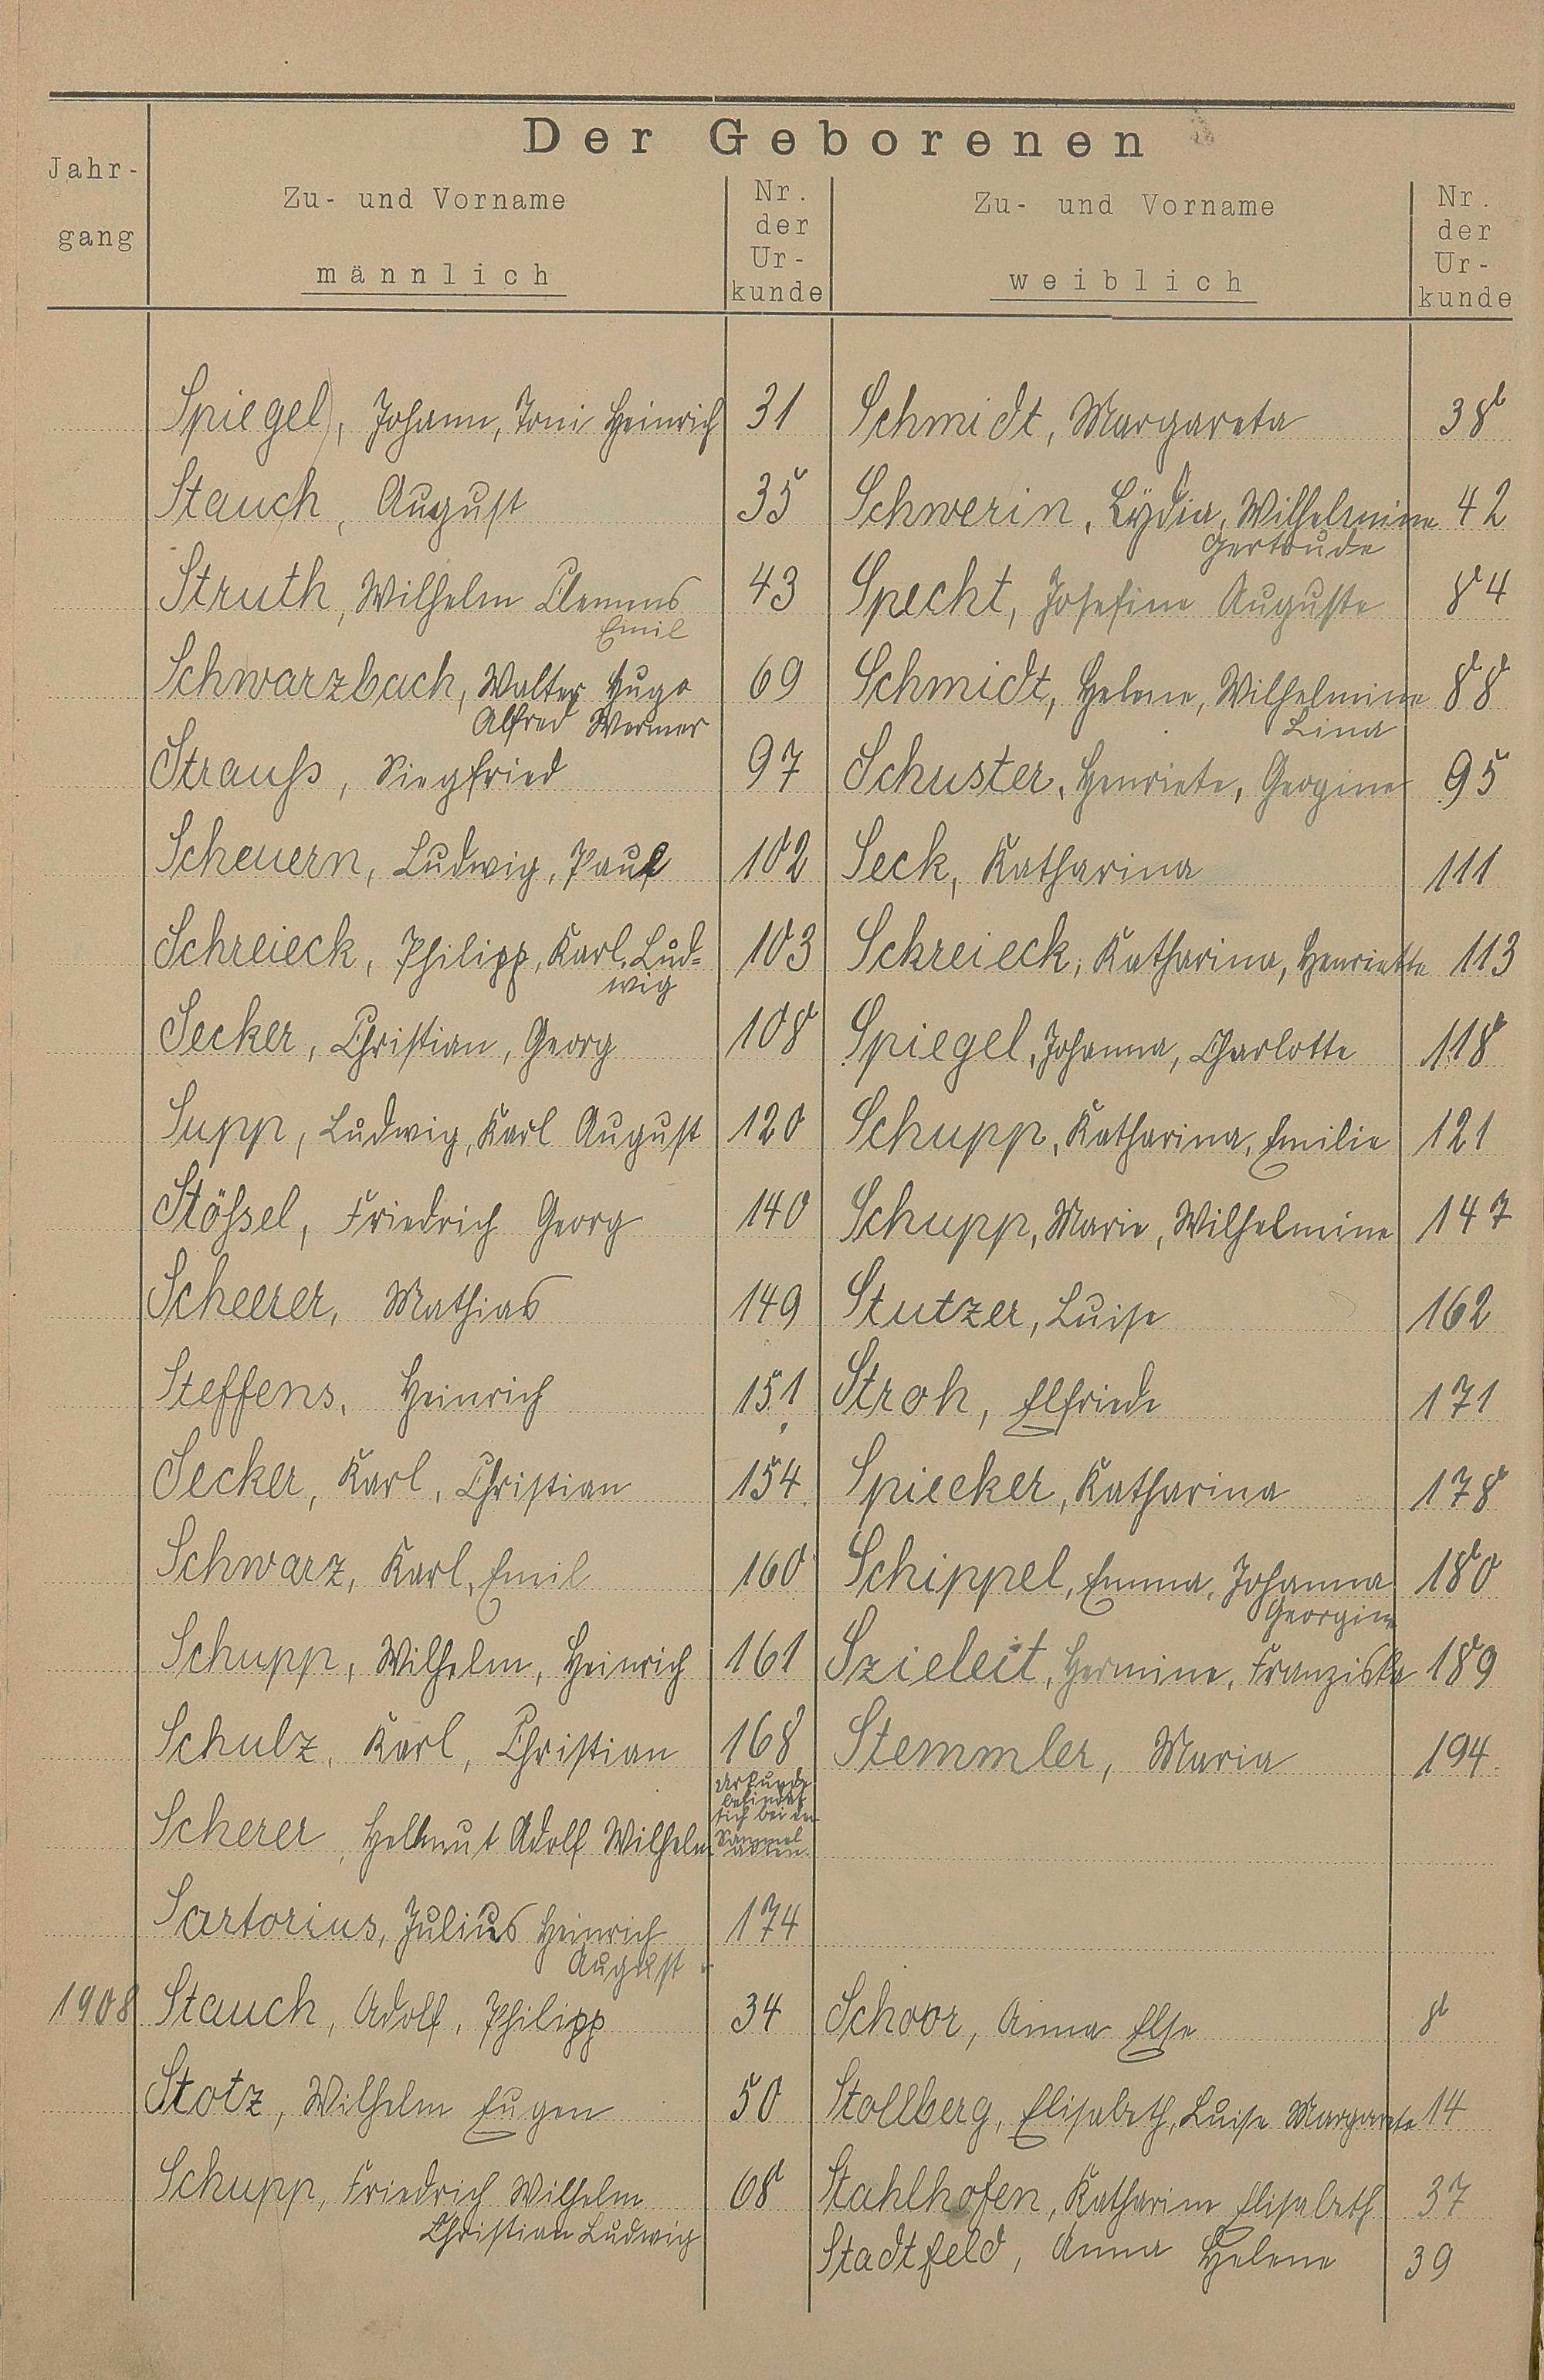 Der Geborenen
Jahr-
gang
Zu- und Vorname
männlich
Nr.
der
Ur-
kunde
Zu- und Vorname
weiblich
Nr.
der
Ur-
kunde
Spiegel, Johann, Toni Heinrich 31 Schmidt, Margareta 38
Stauch, August 35 Schwerin, Lÿdia, Wilhelmine 42
Gertrude
Struth, Wilhelm Clemens 43 Specht, Josefine Auguste 84
Emil
Schwarzbach, Walter Hugo 69 Schmidt, Helene, Wilhelmine 88
Alfred Werner Lina
Strauss, Siegfried 97 Schuster, Henriete, Georgine 95
Scheuern, Ludwig, Paul 102 Seck, Katharina 111
Schreieck, Philipp, Karl, Lud- 103 Schreieck, Katharina, Henriette 113
wig
Secker, Christian, Georg 108 Spiegel, Johanna, Charlotte 118
Supp, Ludwig, Karl August 120 Schupp, Katharina, Emilie 121
Stössel, Friedrich Georg 140 Schupp, Marie, Wilhelmine 147
Scheerer, Mathias 149 Stutzer, Luise 162
Steffens, Heinrich 151 Stroh, Elfriede 171
Secker, Karl, Christian 154 Spiecker, Katharina 178
Schwarz, Karl, Emil 160 Schippel, Emma, Johanna 180
Georgine
Schupp, Wilhelm, Heinrich 161 Szieleit, Hermine, Franziska 189
Schulz, Karl, Christian 168 Stemmler, Maria 194
Urkunde
befindet
sich bei den
Scherer, Hellmut Adolf Wilhelm Sammel
akten
Sartorius, Julius Heinrich 174
August
1908 Stauch, Adolf, Philipp 34 Schoor, Anna Else 8
Stotz, Wilhelm Eugen 50 Stollberg, Elisabeth, Luise Margarete 14
Schupp, Friedrich Wilhelm 68 Stahlhofen, Katharine Elisabeth 37
Christian Ludwig
Stadtfeld, Anna Helene 39